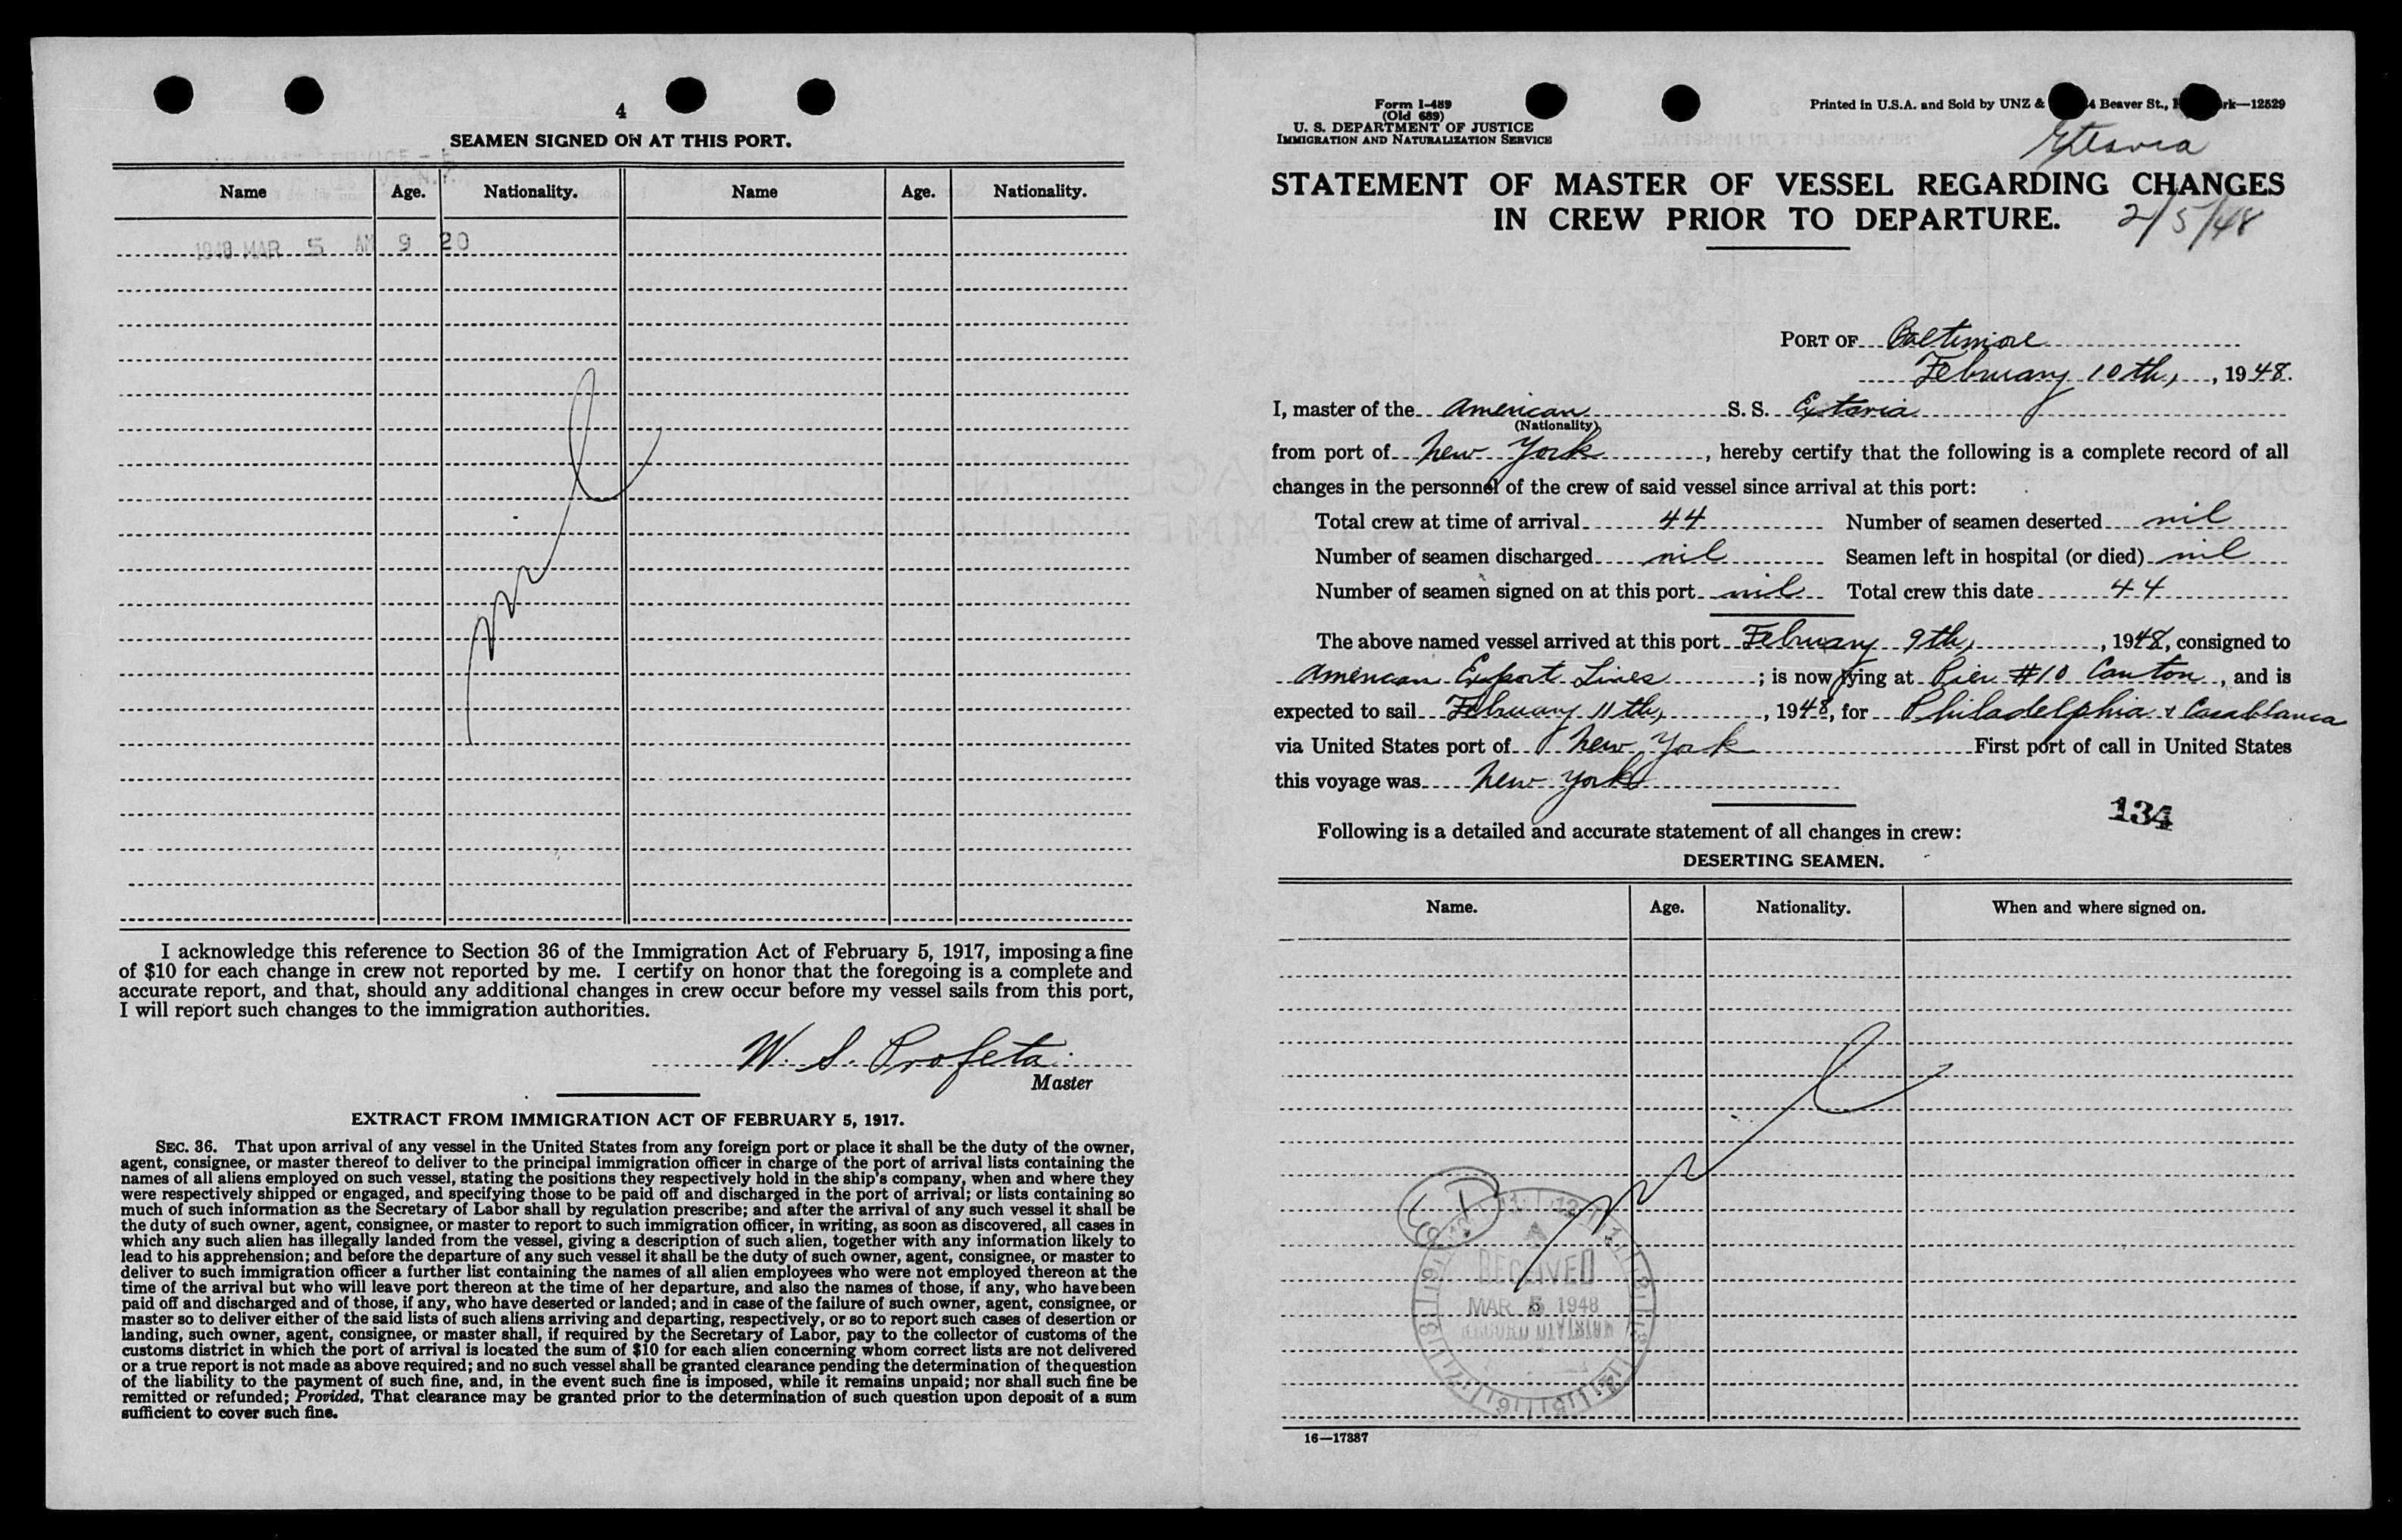 4
SEAMEN SIGNED ON AT THIS PORT.
Name Age. Nationality. Name Age. Nationality.
1948 MAR 5 AM 9 20
nil
I acknowledge this reference to Section 36 of the Immigration Act of February 5, 1917, imposing a fine
of $10 for each change in crew not reported by me. I certify on honor that the foregoing is a complete and
accurate report, and that, should any additional changes in crew occur before my vessel sails from this port,
I will report such changes to the immigration authorities.
W. S. Profeta
Master
EXTRACT FROM IMMIGRATION ACT OF FEBRUARY 5, 1917.
SEC. 36. That upon arrival of any vessel in the United States from any foreign port or place it shall be the duty of the owner,
agent, consignee, or master thereof to deliver to the principal immigration officer in charge of the port of arrival lists containing the
names of all aliens employed on such vessel, stating the positions they respectively hold in the ship's company, when and where they
were respectively shipped or engaged, and specifying those to be paid off and discharged in the port of arrival; or lists containing so
much of such information as the Secretary of Labor shall by regulation prescribe; and after the arrival of any such vessel it shall be
the duty of such owner, agent, consignee, or master to report to such immigration officer, in writing, as soon as discovered, all cases in
which any such alien has illegally landed from the vessel, giving a description of such alien, together with any information likely to
lead to his apprehension; and before the departure of any such vessel it shall be the duty of such owner, agent, consignee, or master to
deliver to such immigration officer a further list containing the names of all alien employees who were not employed thereon at the
time of the arrival but who will leave port thereon at the time of her departure, and also the names of those, if any, who have been
paid off and discharged and of those, if any, who have deserted or landed; and in case of the failure of such owner, agent, consignee, or
master so to deliver either of the said lists of such aliens arriving and departing, respectively, or so to report such cases of desertion or
landing, such owner, agent, consignee, or master shall, if required by the Secretary of Labor, pay to the collector of customs of the
customs district in which the port of arrival is located the sum of $10 for each alien concerning whom correct lists are not delivered
or a true report is not made as above required; and no such vessel shall be granted clearance pending the determination of the question
of the liability to the payment of such fine, and, in the event such fine is imposed, while it remains unpaid; nor shall such fine be
remitted or refunded; Provided, That clearance may be granted prior to the determination of such question upon deposit of a sum
sufficient to cover such fine.
Form I-489
(Old 689)
U. S. DEPARTMENT OF JUSTICE
IMMIGRATION AND NATURALIZATION SERVICE
Printed in U.S.A. and Sold by UNZ & 4 Beaver St., rk—12529
STATEMENT OF MASTER OF VESSEL REGARDING CHANGES
IN CREW PRIOR TO DEPARTURE.
2/5/48
PORT OF Baltimore
February 10th, , 1948.
I, master of the American S. S. Extavia
(Nationality)
from port of New York , hereby certify that the following is a complete record of all
changes in the personnel of the crew of said vessel since arrival at this port:
Total crew at time of arrival 44 Number of seamen deserted nil
Number of seamen discharged nil Seamen left in hospital (or died) nil
Number of seamen signed on at this port nil Total crew this date 44
The above named vessel arrived at this port February 9th, , 1948, consigned to
American Export Lines ; is now lying at Pier #10 Canton , and is
expected to sail February 11th, , 1948, for Philadelphia & Casablanca
via United States port of New York First port of call in United States
this voyage was New York
134
Following is a detailed and accurate statement of all changes in crew:
DESERTING SEAMEN.
Name. Age. Nationality. When and where signed on.
nil
RECEIVED
MAR 5 1948
RECORD DIVISION
16—17387